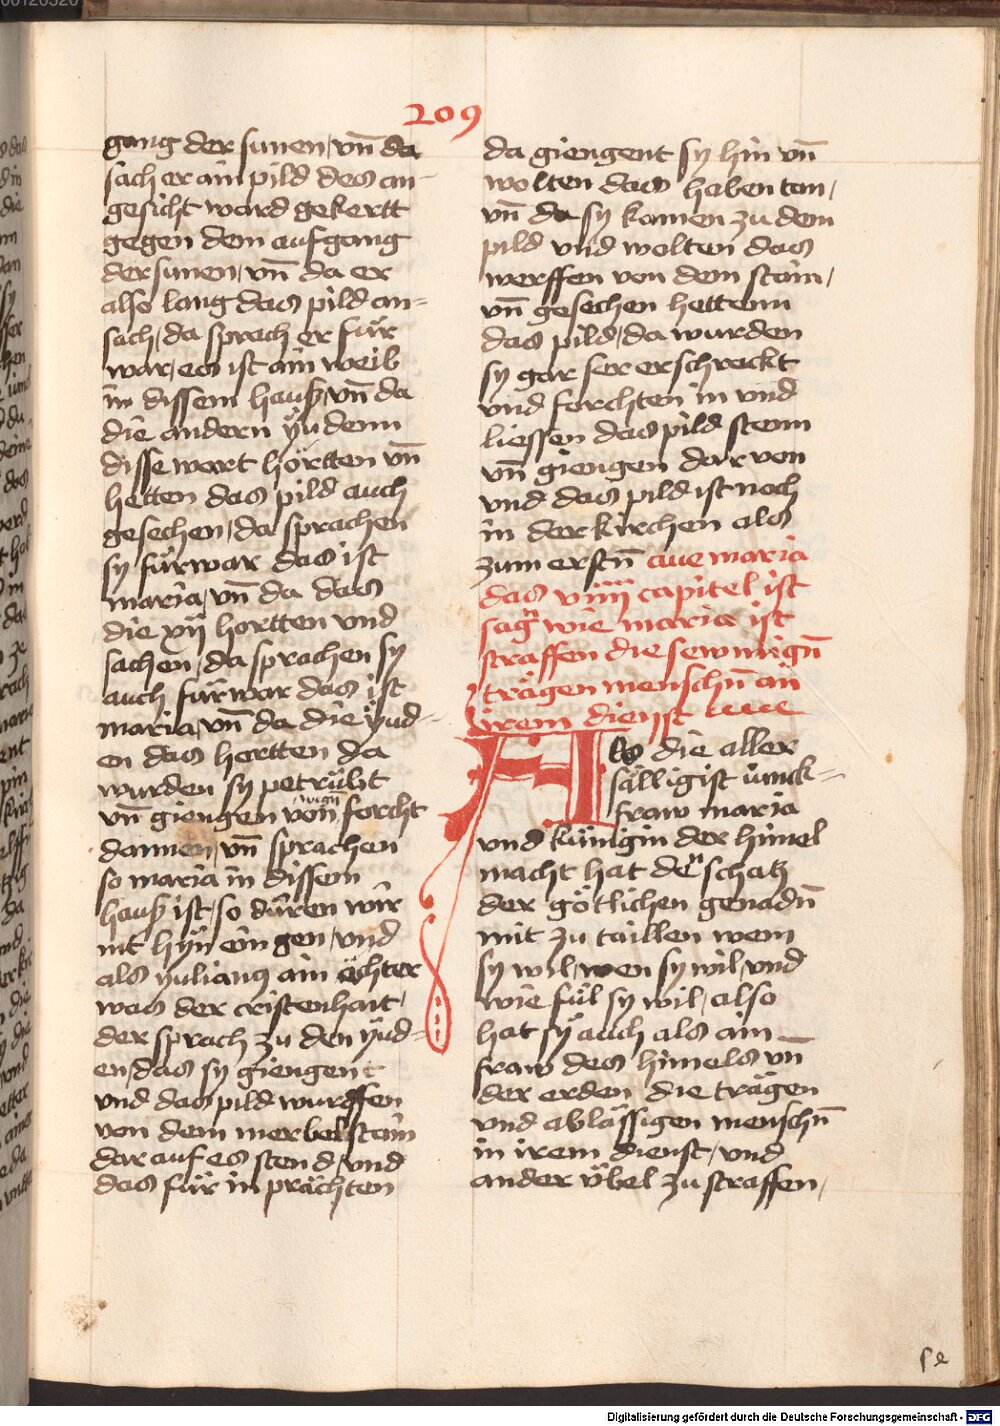 209
gang der sunen / vn̄ da
sach er ain pild des an-
gesicht ward gekertt
gegen dem aufgang
der sunen / vn̄ da er
also lang das pild an=
sach / da sprach er für
war / es ist ain weib
in dissem hauß / vn̄ da
die andern yudenn
disse wort hörtten vn̄
hetten das pild auch
gesechen / da sprachen
sy fürwar das ist
maria / vn̄ da das
die xij hortten vnd
sachen / da sprachen sy
auch fürwar das ist
maria / vn̄ da die yud=
en das hortten da
wurden sy petrübt
vn̄ giengen von forcht
dannen / vn̄ sprachen
so maria in dissem
hauß ist / so düren wir
nit hyn ein gen / vnd
als yulianus ain echter
was der cristenhait /
der sprach zu den yud=
en / das sy giengent
vnd das pild wurffen
von dem merbelstain
dar auf es stend / vnd
das für in prächten
da giengent sy hin vn̄
wolten das haben tan /
vn̄ da sy komen zu dem
pild vnd wolten das
werffen von dem stain /
vn̄ gesechen hettenn
das pild / da wurden
sy gar ser erschreckt
vnd forchten in vnd
liessen das pild stenn
vn̄ giengen dar von
vnd das pild ist noch
in der kirchen als
zum erstn̄ aue maria
das viiij capitel ist
sagn wie maria ist
straffen die sewmign̄
trägen menschn̄ an
irem dienst
Als die aller
sälligist iunck=
fraw maria
vnd künigin der himel
macht hat den schatz
der götlichen genadn̄
mit zu taillen wem
sy wil / wen sy wil / vnd
wie fül sy wil / also
hat sy auch als ain
fraw des himels vn̄
der erden die trägen
vnd ablässigen menschn̄
in irem dienst / vnd
ander übel zu straffen /
Digitalisierung gefördert durch die Deutsche Forschungsgemeinschaft - DFG